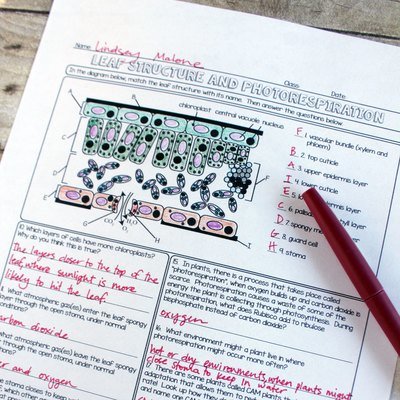 Name Lindsey Malone Class Date
LEAF STRUCTURE AND PHOTORESPIRATION
In the diagram below, match the leaf structure with its name. Then answer the questions below.
chloroplast central vacuole nucleus
A
B
C
D
E
F
G
H
I
CO₂
O₂
F 1. vascular bundle (xylem and
phloem)
B 2. top cuticle
A 3. upper epidermis layer
I 4. lower cuticle
E 5. lower epidermis layer
C 6. palisade
D 7. spongy
G 8. guard cell
H 9. stoma
10. Which layers of cells have more chloroplasts?
Why do you think this is true?
The layers closer to the top of the
leaf, where sunlight is more
likely to hit the leaf.
What atmospheric gas(es) enter the leaf spongy
layer through the open stoma, under normal
conditions?
carbon dioxide
What atmospheric gas(es) leave the leaf spongy
layer through the open stoma, under normal
and oxygen
stoma closes to keep
15. In plants, there is a process that takes place called
"photorespiration", when oxygen builds up and carbon dioxide is
scarce. Photorespiration causes a waste of some of the
energy the plant is collecting through photosynthesis. During
photorespiration, what does Rubisco add to ribulose
bisphosphate instead of carbon dioxide?
oxygen
16. What environment might a plant live in where
photorespiration might occur more often?
hot or dry environments, when plants might
close stoma to keep in water
There are some plants called CAM plants
adaptation that allows them to
rate! Look up how they
and name one